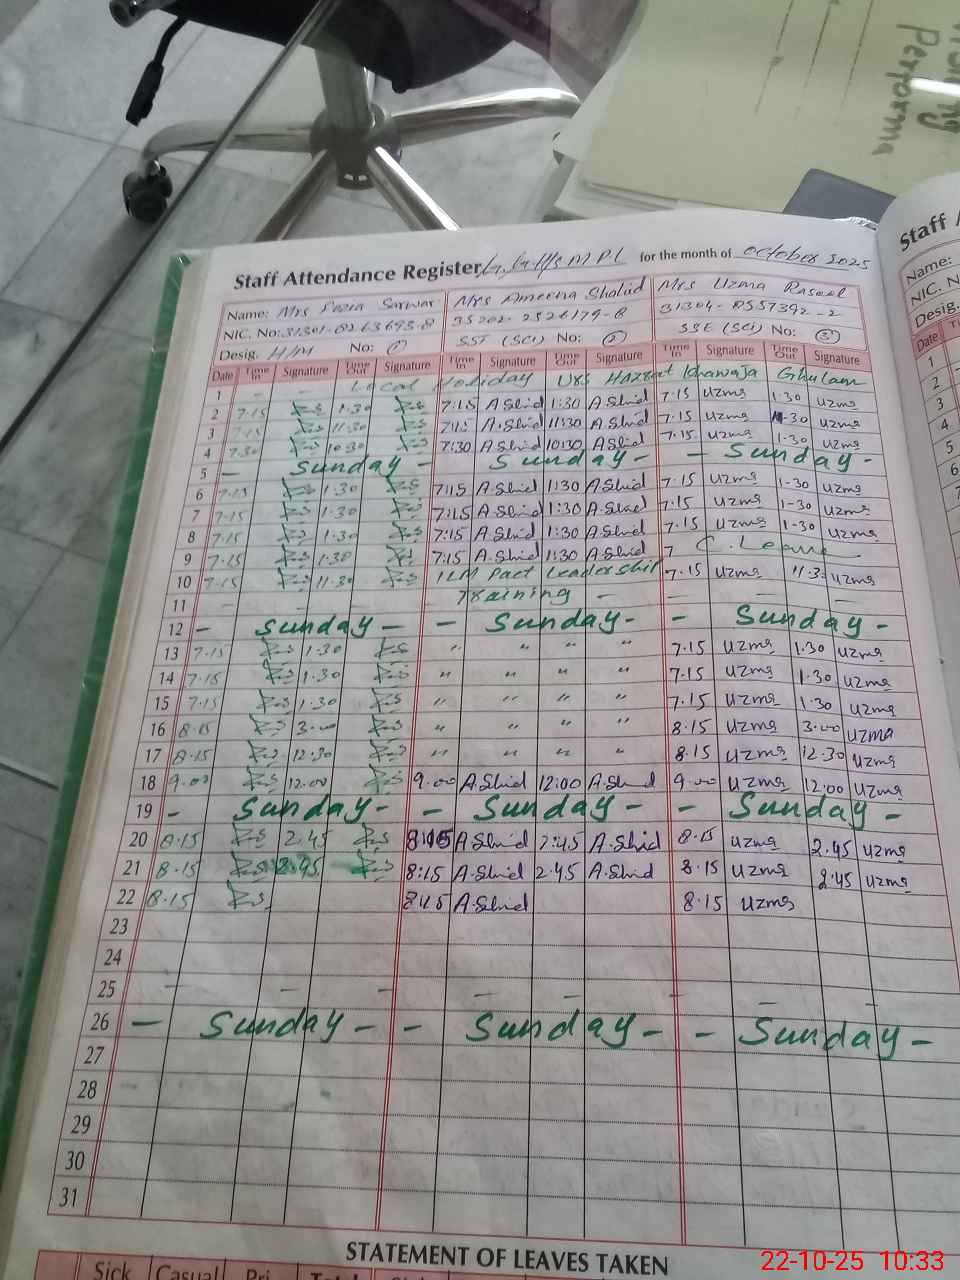 Performa
Staff Attendance Register for the month of October 2025
Staff
Name: Mrs Fozia Sarwar Mrs Ameena Shahid Mrs Uzma Rasool
Name:
NIC. No: 31301-0263693-8 35202-2526179-8 31304-0557392-2
NIC. N
Desig. H/M No: 1 SST (SCi) No: 2 SSE (SCi) No: 3
Desig.
Date Time In Signature Time Out Signature Time In Signature Time Out Signature Time In Signature Time Out Signature
Date
1 - - Local Holiday Urs Hazrat Khawaja Ghulam
2 7:15 1:30 7:15 A.Shid 1:30 A.Shid 7.15 uzma 1.30 uzma
3 7:15 11:30 7:15 A.Shid 11:30 A.Shid 7.15 uzma 11-30 uzma
4 7:30 10:30 7:30 A.Shid 10:30 A.Shid 7.15 uzma 1.30 uzma
5 - Sunday - Sunday - - Sunday -
6 7-15 1.30 7:15 A.Shid 1:30 A.Shid 7.15 uzma 1-30 uzma
7 7-15 1.30 7:15 A.Shid 1:30 A.Shid 7.15 uzma 1-30 uzma
8 7-15 1.30 7:15 A.Shid 1:30 A.Shid 7.15 uzma 1-30 uzma
9 7-15 1:30 7:15 A.Shid 1:30 A.Shid 7 C. Leave
10 7-15 11.30 Leadership 7.15 uzma 11.30 uzma
11 - - - - Training - - - -
12 - Sunday - - Sunday - - Sunday -
13 7-15 1.30 " " " " 7.15 uzma 1.30 uzma
14 7-15 1.30 " " " " 7.15 uzma 1.30 uzma
15 7-15 1.30 " " " " 7.15 uzma 1.30 uzma
16 8.15 3.00 " " " " 8.15 uzma 3.00 uzma
17 8.15 12.30 " " " " 8.15 uzma 12.30 uzma
18 9.00 12.00 9.00 A.Shid 12:00 A.Shid 9.00 uzma 12.00 uzma
19 - Sunday - - Sunday - - Sunday -
20 8-15 2.45 8:15 A.Shid 2:45 A.Shid 8.15 uzma 2.45 uzma
21 8-15 2.45 8:15 A.Shid 2:45 A.Shid 8.15 uzma 2.45 uzma
22 8-15 8:15 A.Shid 8.15 uzma
23
24
25 - - - - - - - -
26 - Sunday - - Sunday - - Sunday -
27
28
29
30
31
STATEMENT OF LEAVES TAKEN
Sick Casual Pri Total
22-10-25 10:33